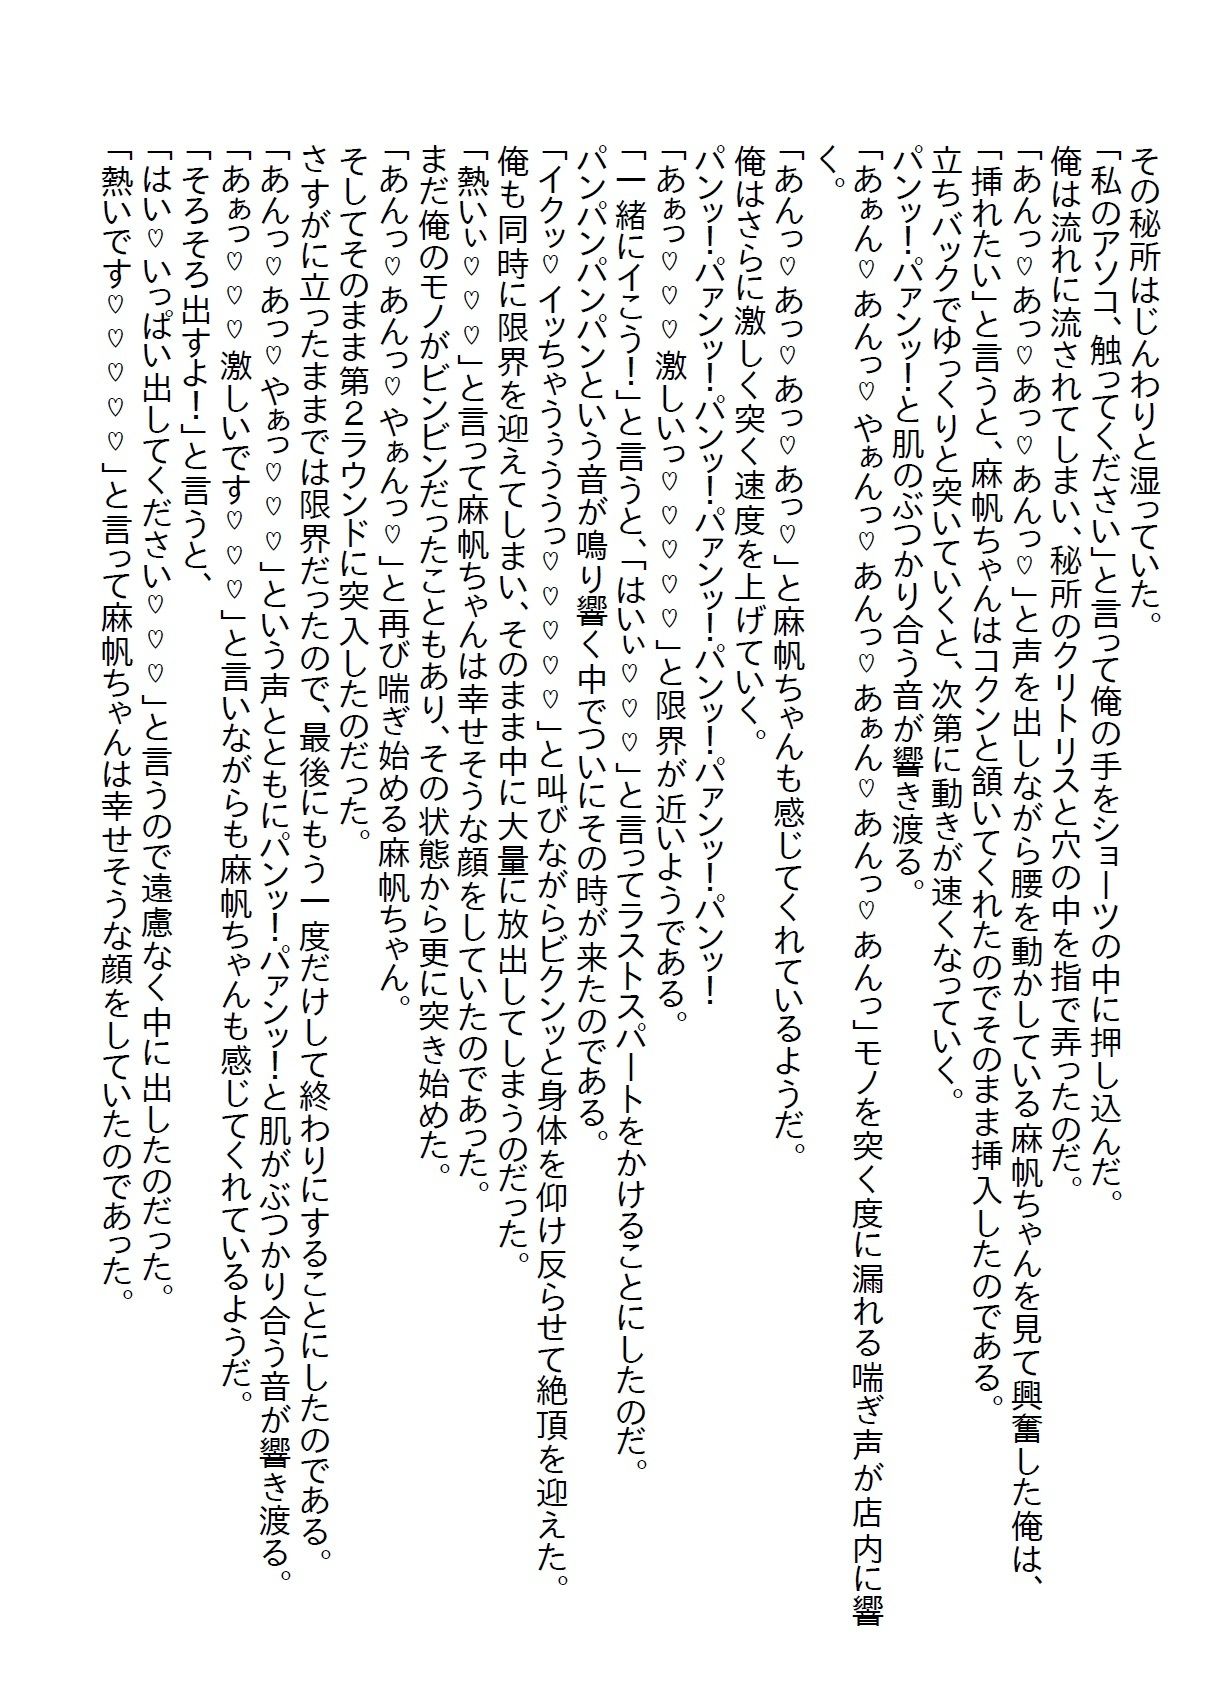 その秘所はじんわりと湿っていた。
「私のアソコ、触ってください」と言って俺の手をショーツの中に押し込んだ。
俺は流れに流されてしまい、秘所のクリトリスと穴の中を指で弄ったのだ。
「あんっ♡あっ♡あっ♡あんっ♡」と声を出しながら腰を動かしている麻帆ちゃんを見て興奮した俺は、
「挿れたい」と言うと、麻帆ちゃんはコクンと頷いてくれたのでそのまま挿入したのである。
立ちバックでゆっくりと突いていくと、次第に動きが速くなっていく。
パンッ！パァンッ！と肌のぶつかり合う音が響き渡る。
「あぁん♡あんっ♡やぁんっ♡あんっ♡あぁん♡あんっ♡あんっ」モノを突く度に漏れる喘ぎ声が店内に響
く。
「あんっ♡あっ♡あっ♡あっ♡」と麻帆ちゃんも感じてくれているようだ。
俺はさらに激しく突く速度を上げていく。
パンッ！パァンッ！パンッ！パァンッ！パンッ！パァンッ！パンッ！
「あぁっ♡♡♡激しいっ♡♡♡♡♡」と限界が近いようである。
「一緒にイこう！」と言うと、「はいぃ♡♡♡」と言ってラストスパートをかけることにしたのだ。
パンパンパンパンという音が鳴り響く中でついにその時が来たのである。
「イクッ♡イッちゃうぅううっ♡♡♡♡♡」と叫びながらビクンッと身体を仰け反らせて絶頂を迎えた。
俺も同時に限界を迎えてしまい、そのまま中に大量に放出してしまうのだった。
「熱いぃ♡♡♡」と言って麻帆ちゃんは幸せそうな顔をしていたのであった。
まだ俺のモノがビンビンだったこともあり、その状態から更に突き始めた。
「あんっ♡あんっ♡やぁんっ♡」と再び喘ぎ始める麻帆ちゃん。
そしてそのまま第２ラウンドに突入したのだった。
さすがに立ったままでは限界だったので、最後にもう一度だけして終わりにすることにしたのである。
「あんっ♡あっ♡やぁっ♡♡♡」という声とともにパンッ！パァンッ！と肌がぶつかり合う音が響き渡る。
「あぁっ♡♡♡激しいです♡♡♡」と言いながらも麻帆ちゃんも感じてくれているようだ。
「そろそろ出すよ！」と言うと、
「はい♡いっぱい出してください♡♡♡」と言うので遠慮なく中に出したのだった。
「熱いです♡♡♡♡♡」と言って麻帆ちゃんは幸せそうな顔をしていたのであった。